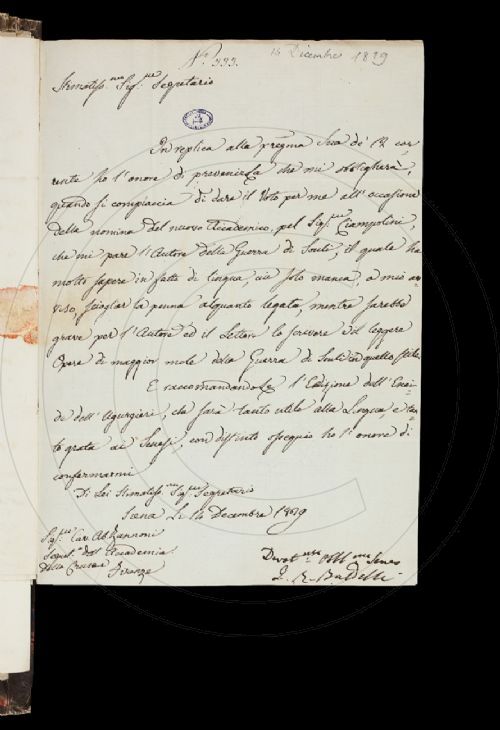 N.° 333.
14 Dicembre 1819
Stimatiss.mo Sig.re Segretario
In replica alla pregma Sua de' 12 cor-
rente ho l'onore di prevenirla che mi obbligherà,
quando si compiaccia di dare il Voto per me all'occasione
della nomina del nuovo Accademico, pel Sig.re Ciampolini,
che mi pare l'Autore della Guerra di Souli, il quale ha
molto sapere in fatto di lingua, cui solo manca, a mio av-
viso, scioglier la penna alquanto legata, mentre sarebbe
grave per l'Autore ed il Lettore lo scrivere ed leggere
Opera di maggior mole della Guerra di Souli in quello stile
E raccomandandole l'Edizione dell'Enei-
de dell'Agurgieri, che sarà tanto utile alla Lingua, e tan-
to grata ai Senesi, con distinto ossequio ho l'onore di
confermarmi
Di Lei Stimatiss.mo Sig.re Segretario
Siena Li 14 Decembre 1819
Sig.re Cav. Ab. Zannoni
Segret.o dell'Accademia
della Crusca Firenze
Devot.mo Obb.mo Serv.
G. B. Baldelli